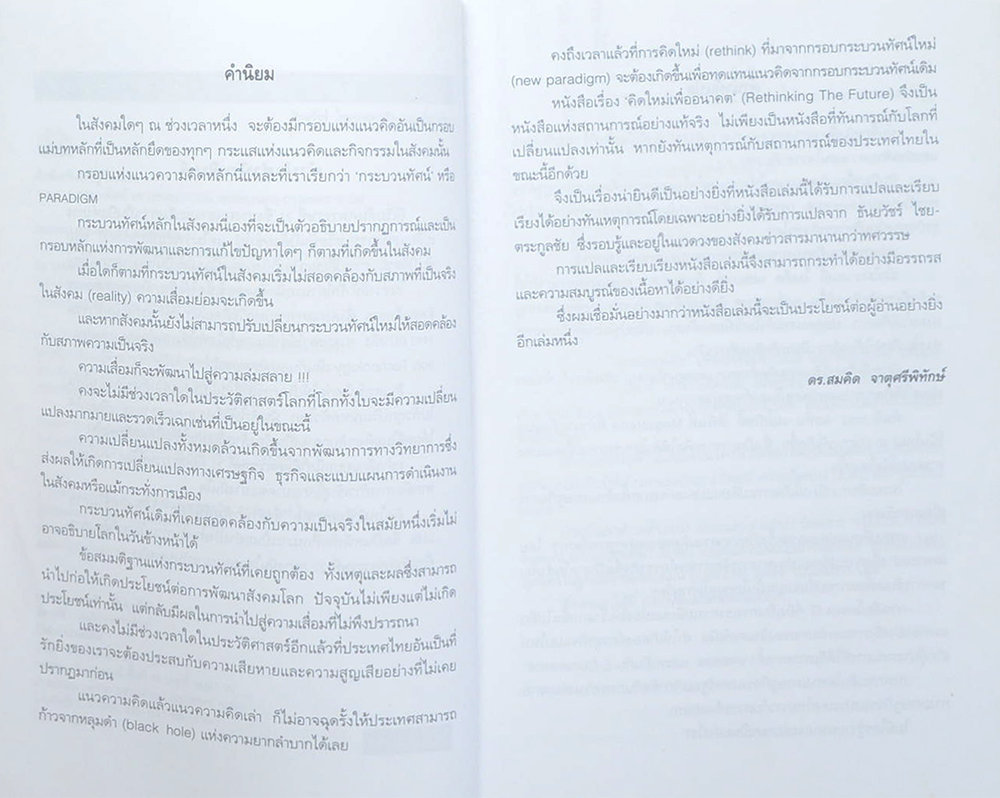 คำนิยม
ในสังคมใดๆ ณ ช่วงเวลาหนึ่ง จะต้องมีกรอบแห่งแนวคิดอันเป็นกรอบ
แม่บทหลักที่เป็นหลักยึดของทุกๆ กระแสแห่งแนวคิดและกิจกรรมในสังคมนั้น
กรอบแห่งแนวความคิดหลักนี่แหละที่เราเรียกว่า ‘กระบวนทัศน์’ หรือ
PARADIGM
กระบวนทัศน์หลักในสังคมนี่เองที่จะเป็นตัวอธิบายปรากฏการณ์และเป็น
กรอบหลักแห่งการพัฒนาและการแก้ไขปัญหาใดๆ ก็ตามที่เกิดขึ้นในสังคม
เมื่อใดก็ตามที่กระบวนทัศน์ในสังคมเริ่มไม่สอดคล้องกับสภาพที่เป็นจริง
ในสังคม (reality) ความเสื่อมย่อมจะเกิดขึ้น
และหากสังคมนั้นยังไม่สามารถปรับเปลี่ยนกระบวนทัศน์ใหม่ให้สอดคล้อง
กับสภาพความเป็นจริง
ความเสื่อมก็จะพัฒนาไปสู่ความล่มสลาย !!!
คงจะไม่มีช่วงเวลาใดในประวัติศาสตร์โลกที่โลกทั้งใบจะมีความเปลี่ยน
แปลงมากมายและรวดเร็วเฉกเช่นที่เป็นอยู่ในขณะนี้
ความเปลี่ยนแปลงทั้งหมดล้วนเกิดขึ้นจากพัฒนาการทางวิทยาการซึ่ง
ส่งผลให้เกิดการเปลี่ยนแปลงทางเศรษฐกิจ ธุรกิจและแบบแผนการดำเนินงาน
ในสังคมหรือแม้กระทั่งการเมือง
กระบวนทัศน์เดิมที่เคยสอดคล้องกับความเป็นจริงในสมัยหนึ่งเริ่มไม่
อาจอธิบายโลกในวันข้างหน้าได้
ข้อสมมติฐานแห่งกระบวนทัศน์ที่เคยถูกต้อง ทั้งเหตุและผลซึ่งสามารถ
นำไปก่อให้เกิดประโยชน์ต่อการพัฒนาสังคมโลก ปัจจุบันไม่เพียงแต่ไม่เกิด
ประโยชน์เท่านั้น แต่กลับมีผลในการนำไปสู่ความเสื่อมที่ไม่พึงปรารถนา
และคงไม่มีช่วงเวลาใดในประวัติศาสตร์อีกแล้วที่ประเทศไทยอันเป็นที่
รักยิ่งของเราจะต้องประสบกับความเสียหายและความสูญเสียอย่างที่ไม่เคย
ปรากฏมาก่อน
แนวความคิดแล้วแนวความคิดเล่า ก็ไม่อาจฉุดรั้งให้ประเทศสามารถ
ก้าวจากหลุมดำ (black hole) แห่งความยากลำบากได้เลย
คงถึงเวลาแล้วที่การคิดใหม่ (rethink) ที่มาจากกรอบกระบวนทัศน์ใหม่
(new paradigm) จะต้องเกิดขึ้นเพื่อทดแทนแนวคิดจากกรอบกระบวนทัศน์เดิม
หนังสือเรื่อง ‘คิดใหม่เพื่ออนาคต’ (Rethinking The Future) จึงเป็น
หนังสือแห่งสถานการณ์อย่างแท้จริง ไม่เพียงเป็นหนังสือที่ทันการณ์กับโลกที่
เปลี่ยนแปลงเท่านั้น หากยังทันเหตุการณ์กับสถานการณ์ของประเทศไทยใน
ขณะนี้อีกด้วย
จึงเป็นเรื่องน่ายินดีเป็นอย่างยิ่งที่หนังสือเล่มนี้ได้รับการแปลและเรียบ
เรียงได้อย่างทันเหตุการณ์โดยเฉพาะอย่างยิ่งได้รับการแปลจาก ธันยวัชร์ ไชย-
ตระกูลชัย ซึ่งรอบรู้และอยู่ในแวดวงของสังคมข่าวสารมานานกว่าทศวรรษ
การแปลและเรียบเรียงหนังสือเล่มนี้จึงสามารถกระทำได้อย่างมีอรรถรส
และความสมบูรณ์ของเนื้อหาได้อย่างดียิ่ง
ซึ่งผมเชื่อมั่นอย่างมากว่าหนังสือเล่มนี้จะเป็นประโยชน์ต่อผู้อ่านอย่างยิ่ง
อีกเล่มหนึ่ง
ดร.สมคิด จาตุศรีพิทักษ์